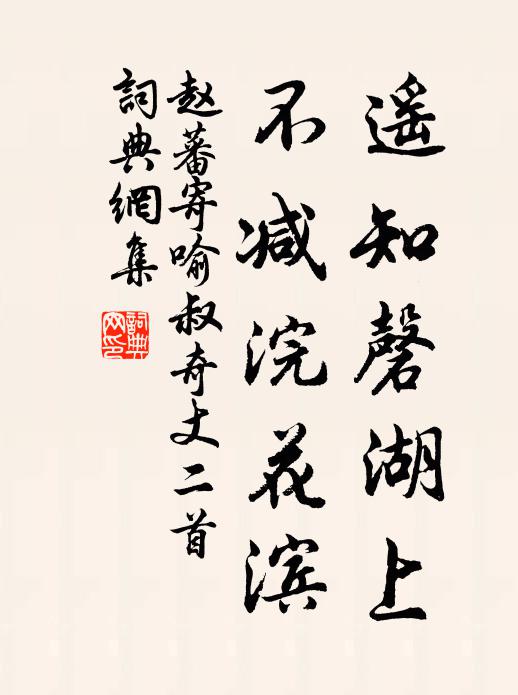 遥知磬湖上
不减浣花滨
赵蕃寄喻叔奇丈二首
詞典網集
詞典网印